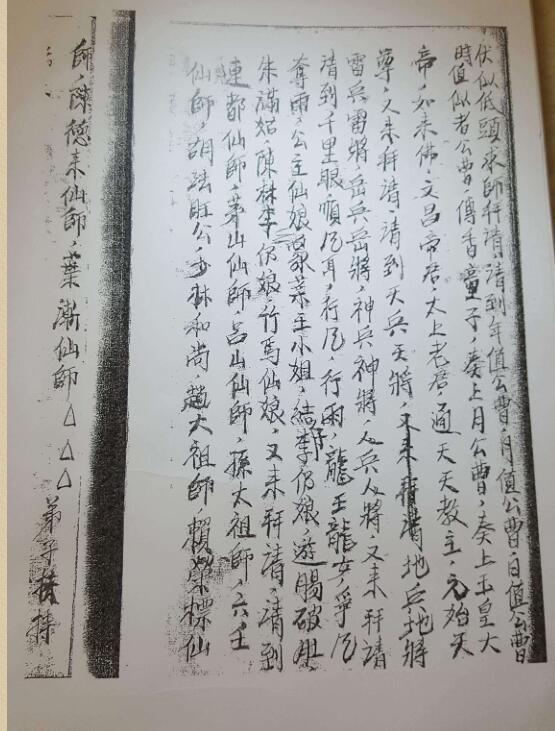 伏似低頭求師拜請，請到年值公曹，月值公曹，日值公曹
時值似者公曹，傳香童子，奏上月公曹，奏上玉皇大
帝，如來佛，文昌帝君。太上老君，通天天教主，元始天
尊，又未拜請，請到天兵天將，又未拜請地兵地將
雷兵雷將，岳兵岳將，神兵神將，人兵人將，又未拜請
請到千里眼順風耳，行風，行雨，龍王龍安，爭風
奪雨，公主仙娘，蒙菜主小姐，結拜李伯娘，遊腸破肚
朱滿姑，陳林李仍娘，竹馬仙娘，又未拜請，請到
連都仙師，茅山仙師，呂山仙師，孫大祖師，六壬
仙師，胡法旺公，少林和尚，趙大祖師，賴榮標仙
師，陳德來仙師，葉漸仙師△△△ 弟子扶持